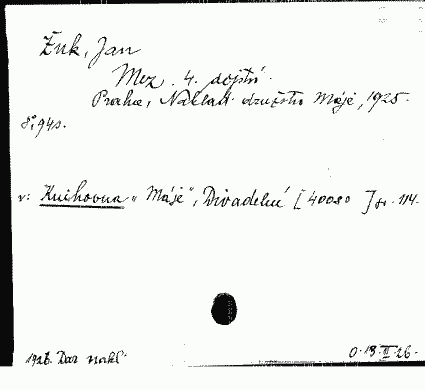 Žuk, Jan
Mez. 4. dějství.
Praha, Naklad. družstvo Máje, 1925.
8°, 94 s.
v: Knihovna „Máje", Divadelní [40080 ] sv. 114.
1926. Dar nakl.
O. 13. II. 26.